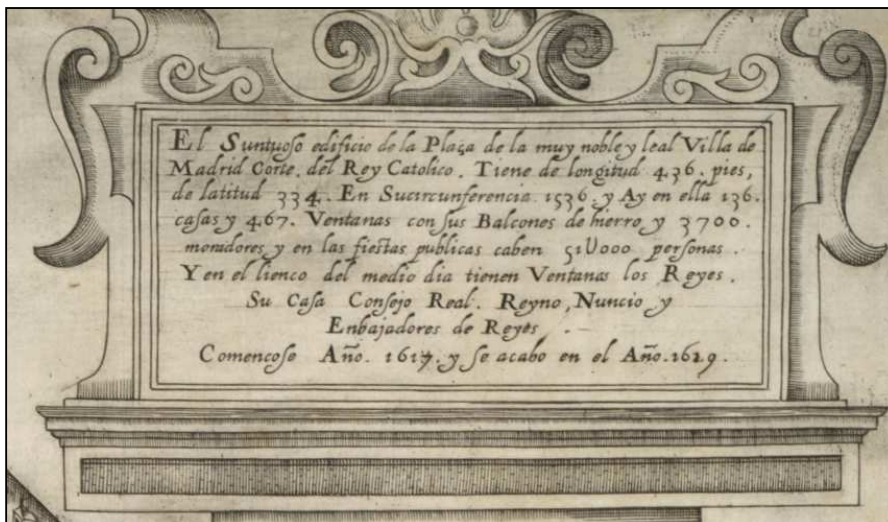 El Suntuoſo edificio de la Plaça de la muy noble y leal Villa de
Madrid Corte. del Rey Catolico. Tiene de longitud 436. pies,
de latitud 334. En Sucircunferencia 1536. y Ay en ella 136.
caſas y 467. Ventanas con ſus Balcones de hierro y 3700.
moradores y en las fieſtas publicas caben 51U000 perſonas.
Y en el lienco del medio dia tienen Ventanas los Reyes.
Su Caſa Conſejo Real. Reyno, Nuncio y
Enbajadores de Reyes.
Comencoſe Año. 1617. y ſe acabo en el Año. 1619.